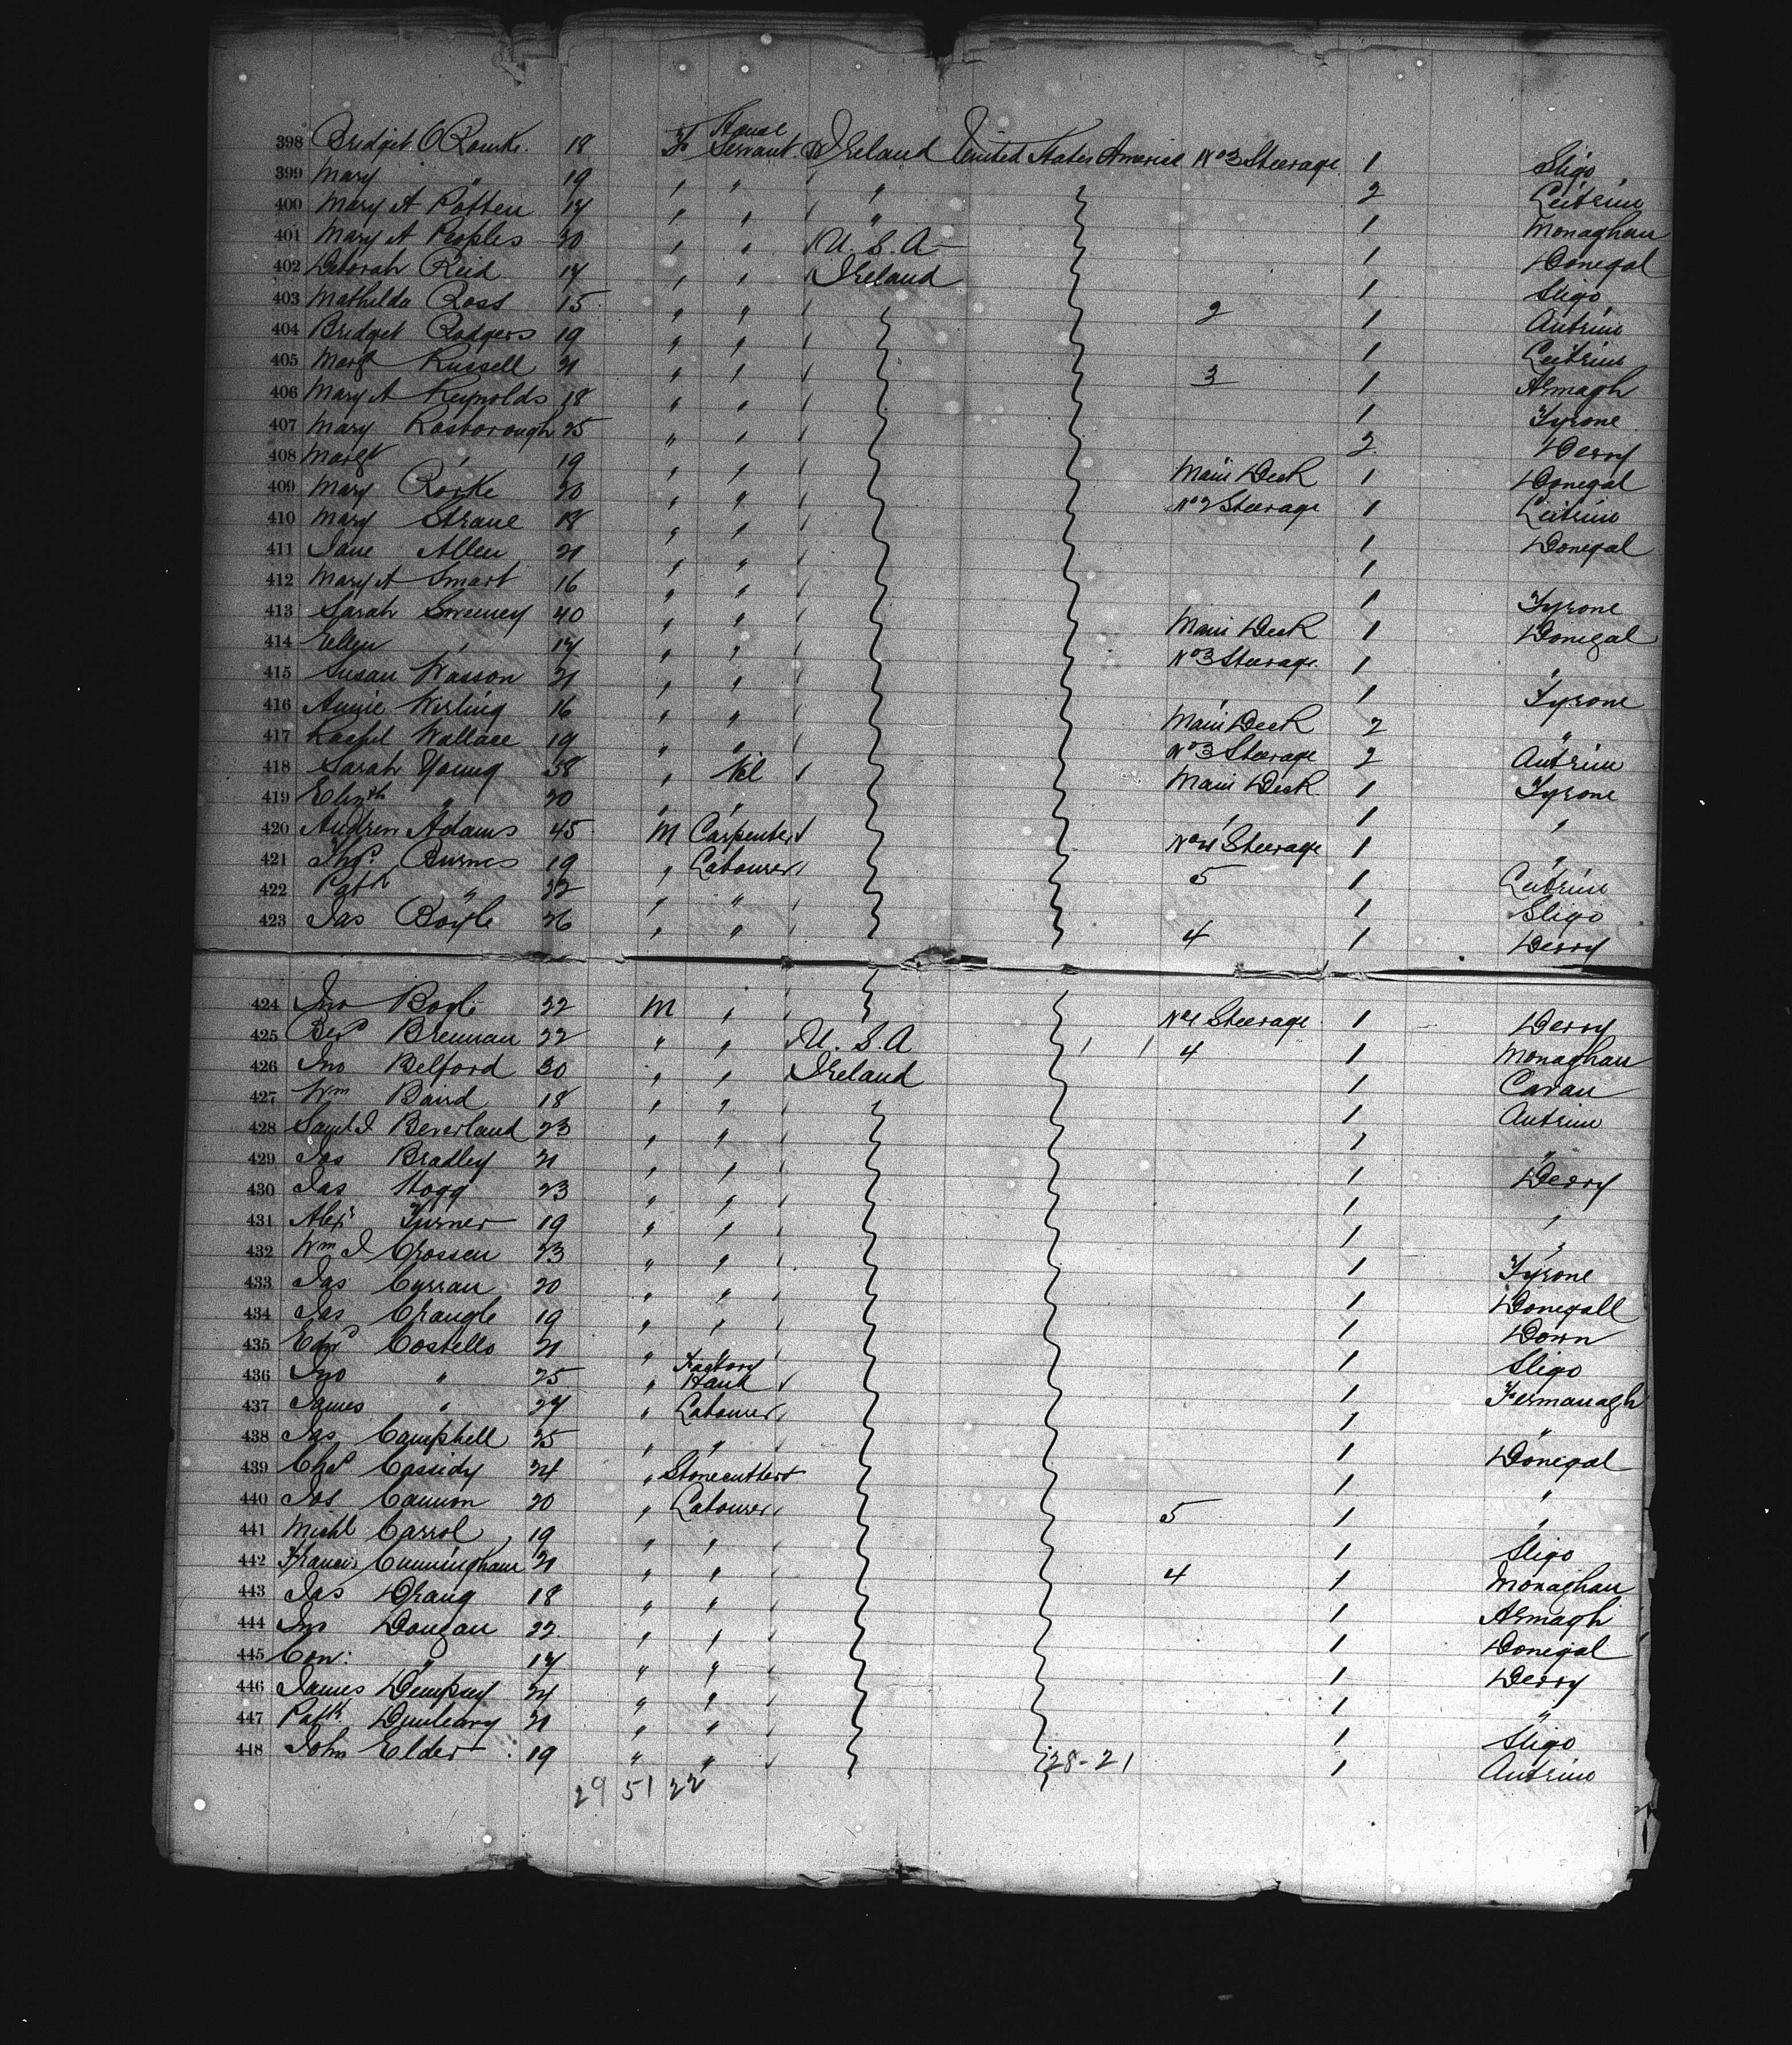 398 Bridget O Rourke. 18 F House Servant Ireland United States America No 3 Steerage 1 Sligo
399 Mary " 19 " " " 2 Leitrim
400 Mary A Patten 17 " " " 1 Monaghan
401 Mary A Peoples 30 " " U. S. A 1 Donegal
402 Deborah Reid 17 " " Ireland 1 Sligo
403 Mathilda Ross 15 " " 2 1 Antrim
404 Bridget Rodgers 19 " " 1 Leitrim
405 Margt Russell 21 " " 3 1 Armagh
406 Mary A Reynolds 18 " " 1 Tyrone
407 Mary Rosborough 25 " " 2 Derry
408 Margt " 19 " " Main Deck 1 Donegal
409 Mary Rorke 20 " " No 2 Steerage 1 Leitrim
410 Mary Strane 18 " " 1 Donegal
411 Jane Allen 21 " " 1
412 Mary A Smart 16 " " 1 Tyrone
413 Sarah Sweeney 40 " " Main Deck 1 Donegal
414 Ellen " 17 " " No 3 Steerage 1 "
415 Susan Wasson 21 " " 1 Tyrone
416 Annie Wirling 16 " " Main Deck 2 "
417 Rachel Wallace 19 " " No 3 Steerage 2 Antrim
418 Sarah Young 58 " Nil Main Deck 1 Tyrone
419 Elizth " 20 " " " 1 "
420 Andrew Adams 45 M Carpenter No 4 Steerage 1 "
421 Thos. Burnes 19 " Labourer 5 1 Leitrim
422 Patk " 22 " " 1 Sligo
423 Jas Boyle 26 " " 4 1 Derry
424 Jno Bogle 22 M " No 1 Steerage 1 Derry
425 Berd Brennan 22 " " U. S. A 4 1 Monaghan
426 Jno Belford 30 " " Ireland 1 Cavan
427 Wm Baird 18 " " 1 Antrim
428 Saml J Beverland 23 " " 1 "
429 Jas Bradley 21 " " 1 Derry
430 Jas Hogg 23 " " 1 "
431 Alexr Turner 19 " " 1 "
432 Wm J Crossen 23 " " 1 Tyrone
433 Jas Curran 20 " " 1 Donegall
434 Jas Crangle 19 " " 1 Down
435 Edwd Costello 21 " " 1 Sligo
436 Jno " 25 " Factory Hand 1 Fermanagh
437 James " 27 " Labourer 1 "
438 Jas Campbell 25 " " 1 Donegal
439 Chas Cassidy 24 " Stonecutter 1 "
440 Jas Cannon 20 " Labourer 5 1 "
441 Michl Carrol 19 " " 1 Sligo
442 Francis Cunningham 21 " " 4 1 Monaghan
443 Jas Crang 18 " " 1 Armagh
444 Jno Dougan 22 " " 1 Donegal
445 Con: " 17 " " 1 Derry
446 James Dempsey 24 " " 1 "
447 Patk Dunleavy 21 " " 1 Sligo
448 John Elder 19 " " 28-21 1 Antrim
29 51 22